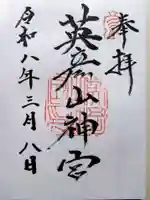 奉拝
英彦山神宮
令和八年三月八日